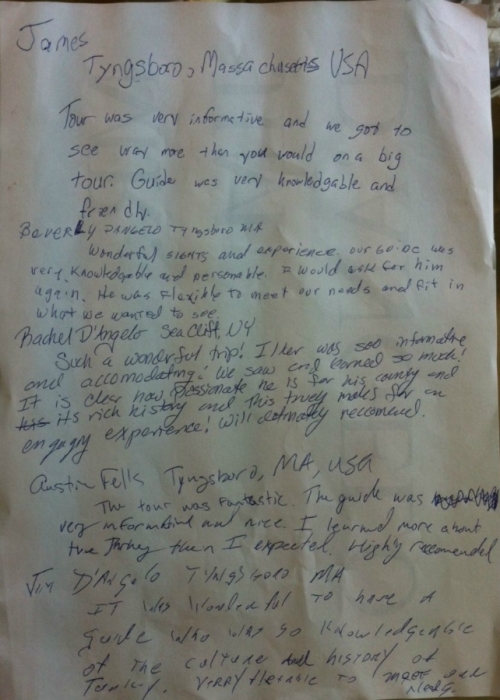 James
Tyngsboro, Massachusetts USA
Tour was very informative and we got to
see way more than you would on a big
tour. Guide was very knowledgable and
friendly.
Beverly D'Angelo Tyngsboro MA
Wonderful sights and experience. Our guide was
very knowledgable and personable. I would ask for him
again. He was flexible to meet our needs and fit in
what we wanted to see.
Rachel D'Angelo Sea Cliff, NY
Such a wonderful trip! Ilker was soo informative
and accomodating! We saw and learned so much!
It is clear how passionate he is for his country and
its rich history and this truely makes for an
engaging experience! Will definately recommend.
Austin Fells Tyngsboro, MA, USA
The tour was fantastic. The guide was
very informative and nice. I learned more about
the then I expected. Highly recomended
Jim D'Angelo Tyngsboro MA
It was wonderful to have a
guide who was so knowledgeable
of the culture and history of
Turkey. Verry flexable to meet our
needs